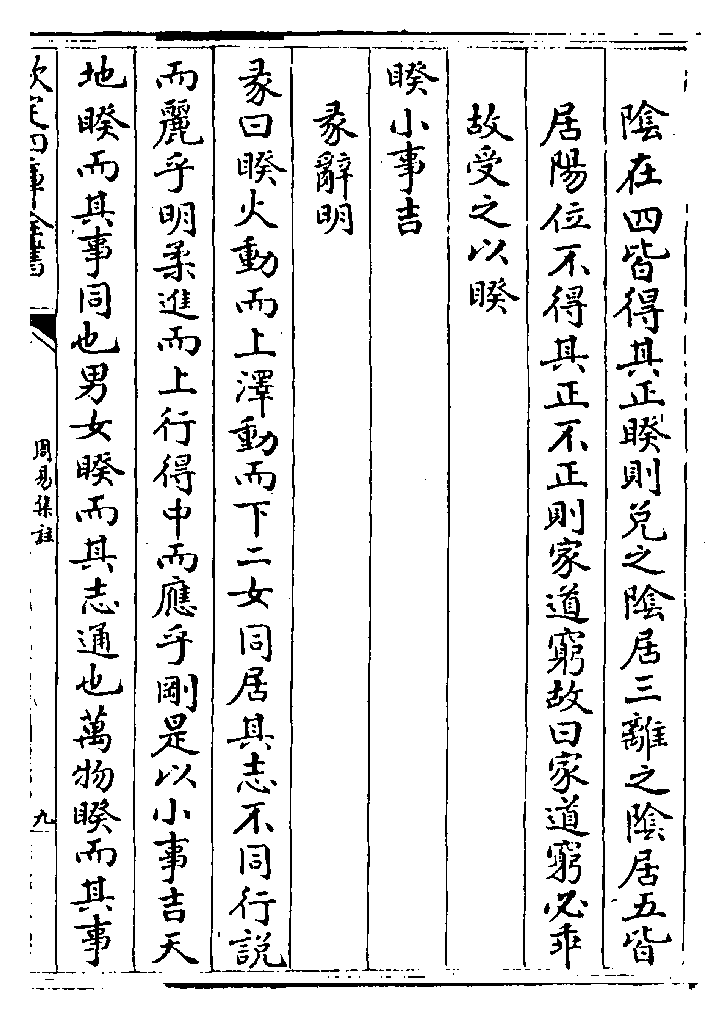 陰在四皆得其正睽則兌之陰居三離之陰居五皆
居陽位不得其正不正則家道窮故曰家道窮必乖
故受之以睽
睽小事吉
彖辭明
彖曰睽火動而上澤動而下二女同居其志不同行説
而麗乎明柔進而上行得中而應乎剛是以小事吉天
地睽而其事同也男女睽而其志通也萬物睽而其事
欽定四庫全書
周易集註
九